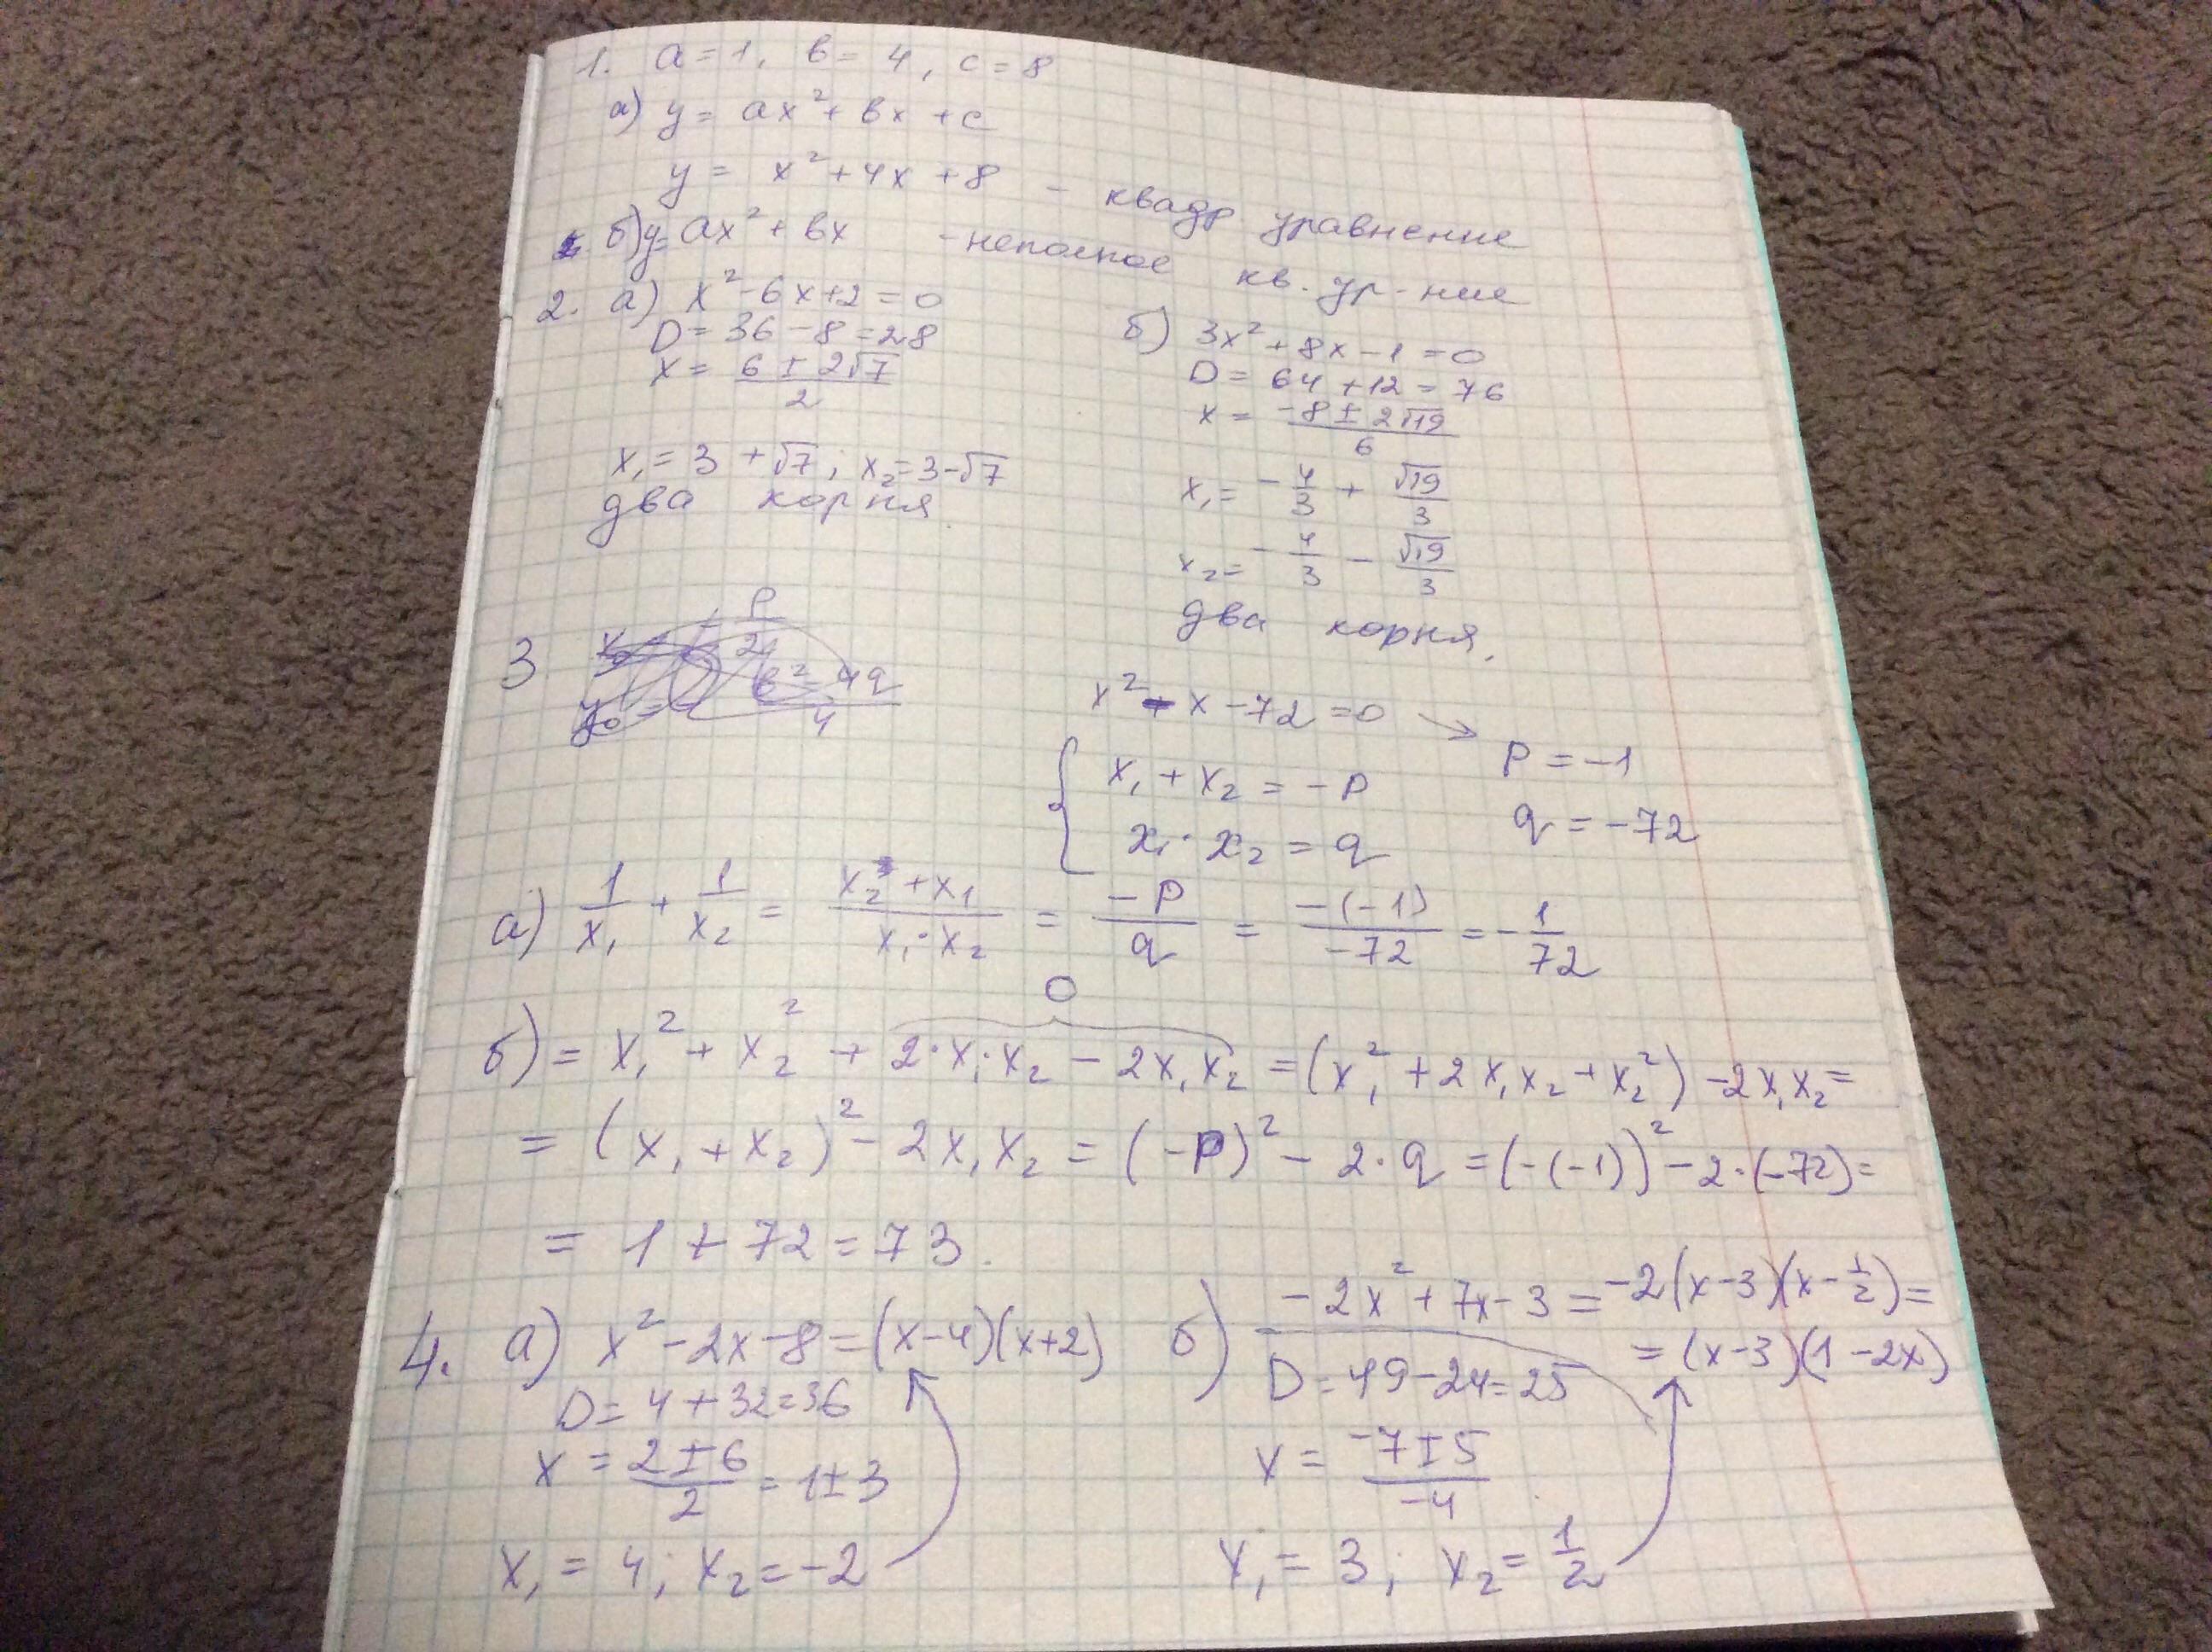 1. a = 1, в = 4, c = 8
а) y = ax² + вx + c
y = x² + 4x + 8 - квадр уравнение
б) y = ax² + вx - неполное кв. ур-ние
2. а) x² - 6x + 2 = 0
D = 36 - 8 = 28
x = (6 ± 2√7)/2
x₁ = 3 + √7; x₂ = 3 - √7
два корня
б) 3x² + 8x - 1 = 0
D = 64 + 12 = 76
x = (-8 ± 2√19)/6
x₁ = -4/3 + √19/3
x₂ = -4/3 - √19/3
два корня.
3
x² - x - 72 = 0 → p = -1
q = -72
{ x₁ + x₂ = -p
x₁ · x₂ = q
а) 1/x₁ + 1/x₂ = (x₂ + x₁)/(x₁ · x₂) = -p/q = -(-1)/-72 = -1/72
0
б) = x₁² + x₂² + 2·x₁·x₂ - 2x₁x₂ = (x₁² + 2x₁x₂ + x₂²) - 2x₁x₂ =
= (x₁ + x₂)² - 2x₁x₂ = (-p)² - 2·q = (-(-1))² - 2·(-72) =
= 1 + 72 = 73.
4. а) x² - 2x - 8 = (x - 4)(x + 2)
D = 4 + 32 = 36
x = (2 ± 6)/2 = 1 ± 3
x₁ = 4; x₂ = -2
б) -2x² + 7x - 3 = -2(x - 3)(x - 1/2) =
= (x - 3)(1 - 2x)
D = 49 - 24 = 25
x = (-7 ± 5)/-4
x₁ = 3; x₂ = 1/2